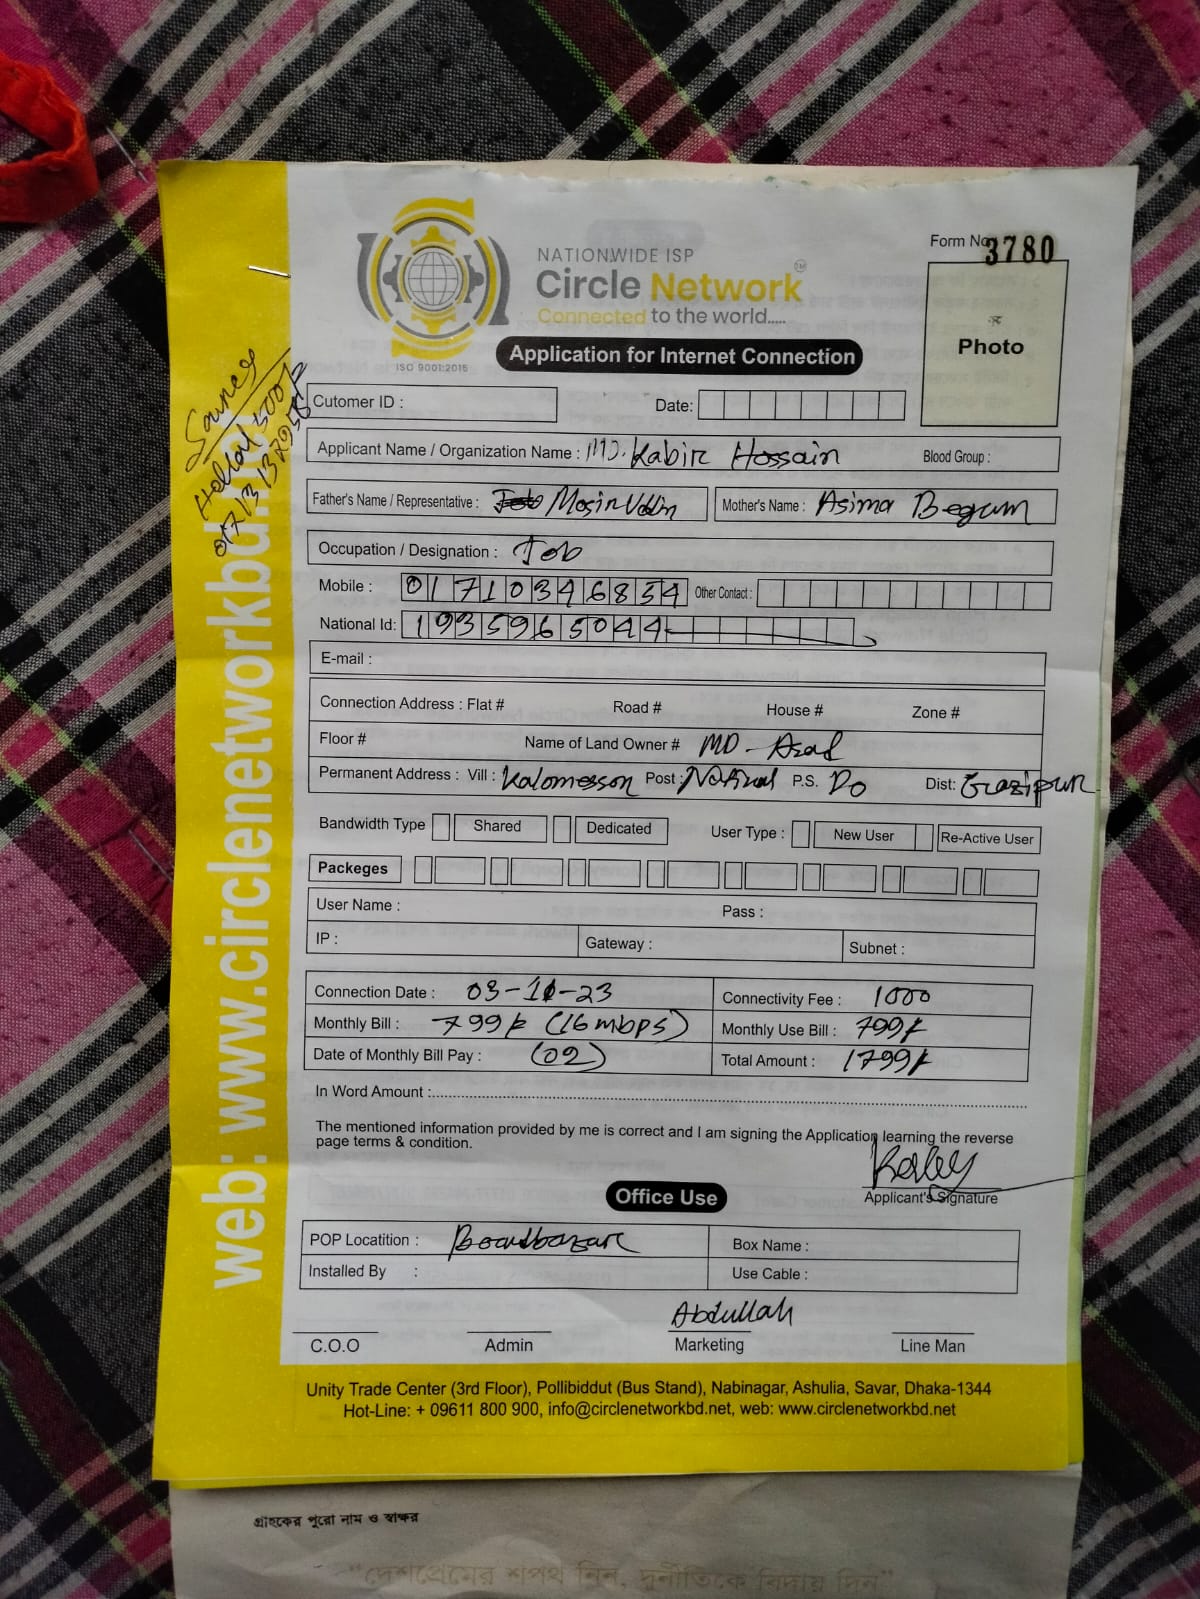 NATIONWIDE ISP
Circle Network TM
Connected to the world.....
ISO 9001:2015
Form No 3780
Photo
Application for Internet Connection
Cutomer ID :
Date:
Applicant Name / Organization Name : MD. Kabir Hossain Blood Group :
Father's Name / Representative : Mosin Uddin Mother's Name : Asima Begum
Occupation / Designation : Job
Mobile : 01710346834 Other Contact :
National Id: 1935965044
E-mail :
Connection Address : Flat # Road # House # Zone #
Floor # Name of Land Owner # MD - Azad
Permanent Address : Vill : Kalomesson Post : P.S. Do Dist: Gazipur
Bandwidth Type Shared Dedicated User Type : New User Re-Active User
Packeges
User Name : Pass :
IP : Gateway : Subnet :
Connection Date : 03-11-23 Connectivity Fee : 1000
Monthly Bill : 799/- (16 mbps) Monthly Use Bill : 799/-
Date of Monthly Bill Pay : (02) Total Amount : 1799/-
In Word Amount :
The mentioned information provided by me is correct and I am signing the Application learning the reverse
page terms & condition.
Applicant's Signature
Office Use
POP Locatition : Boardbazar Box Name :
Installed By : Use Cable :
Abdullah
C.O.O Admin Marketing Line Man
Unity Trade Center (3rd Floor), Pollibiddut (Bus Stand), Nabinagar, Ashulia, Savar, Dhaka-1344
Hot-Line: + 09611 800 900, info@circlenetworkbd.net, web: www.circlenetworkbd.net
গ্রাহকের পুরো নাম ও স্বাক্ষর
"দেশপ্রেমের শপথ নিন, দুর্নীতিকে বিদায় দিন"